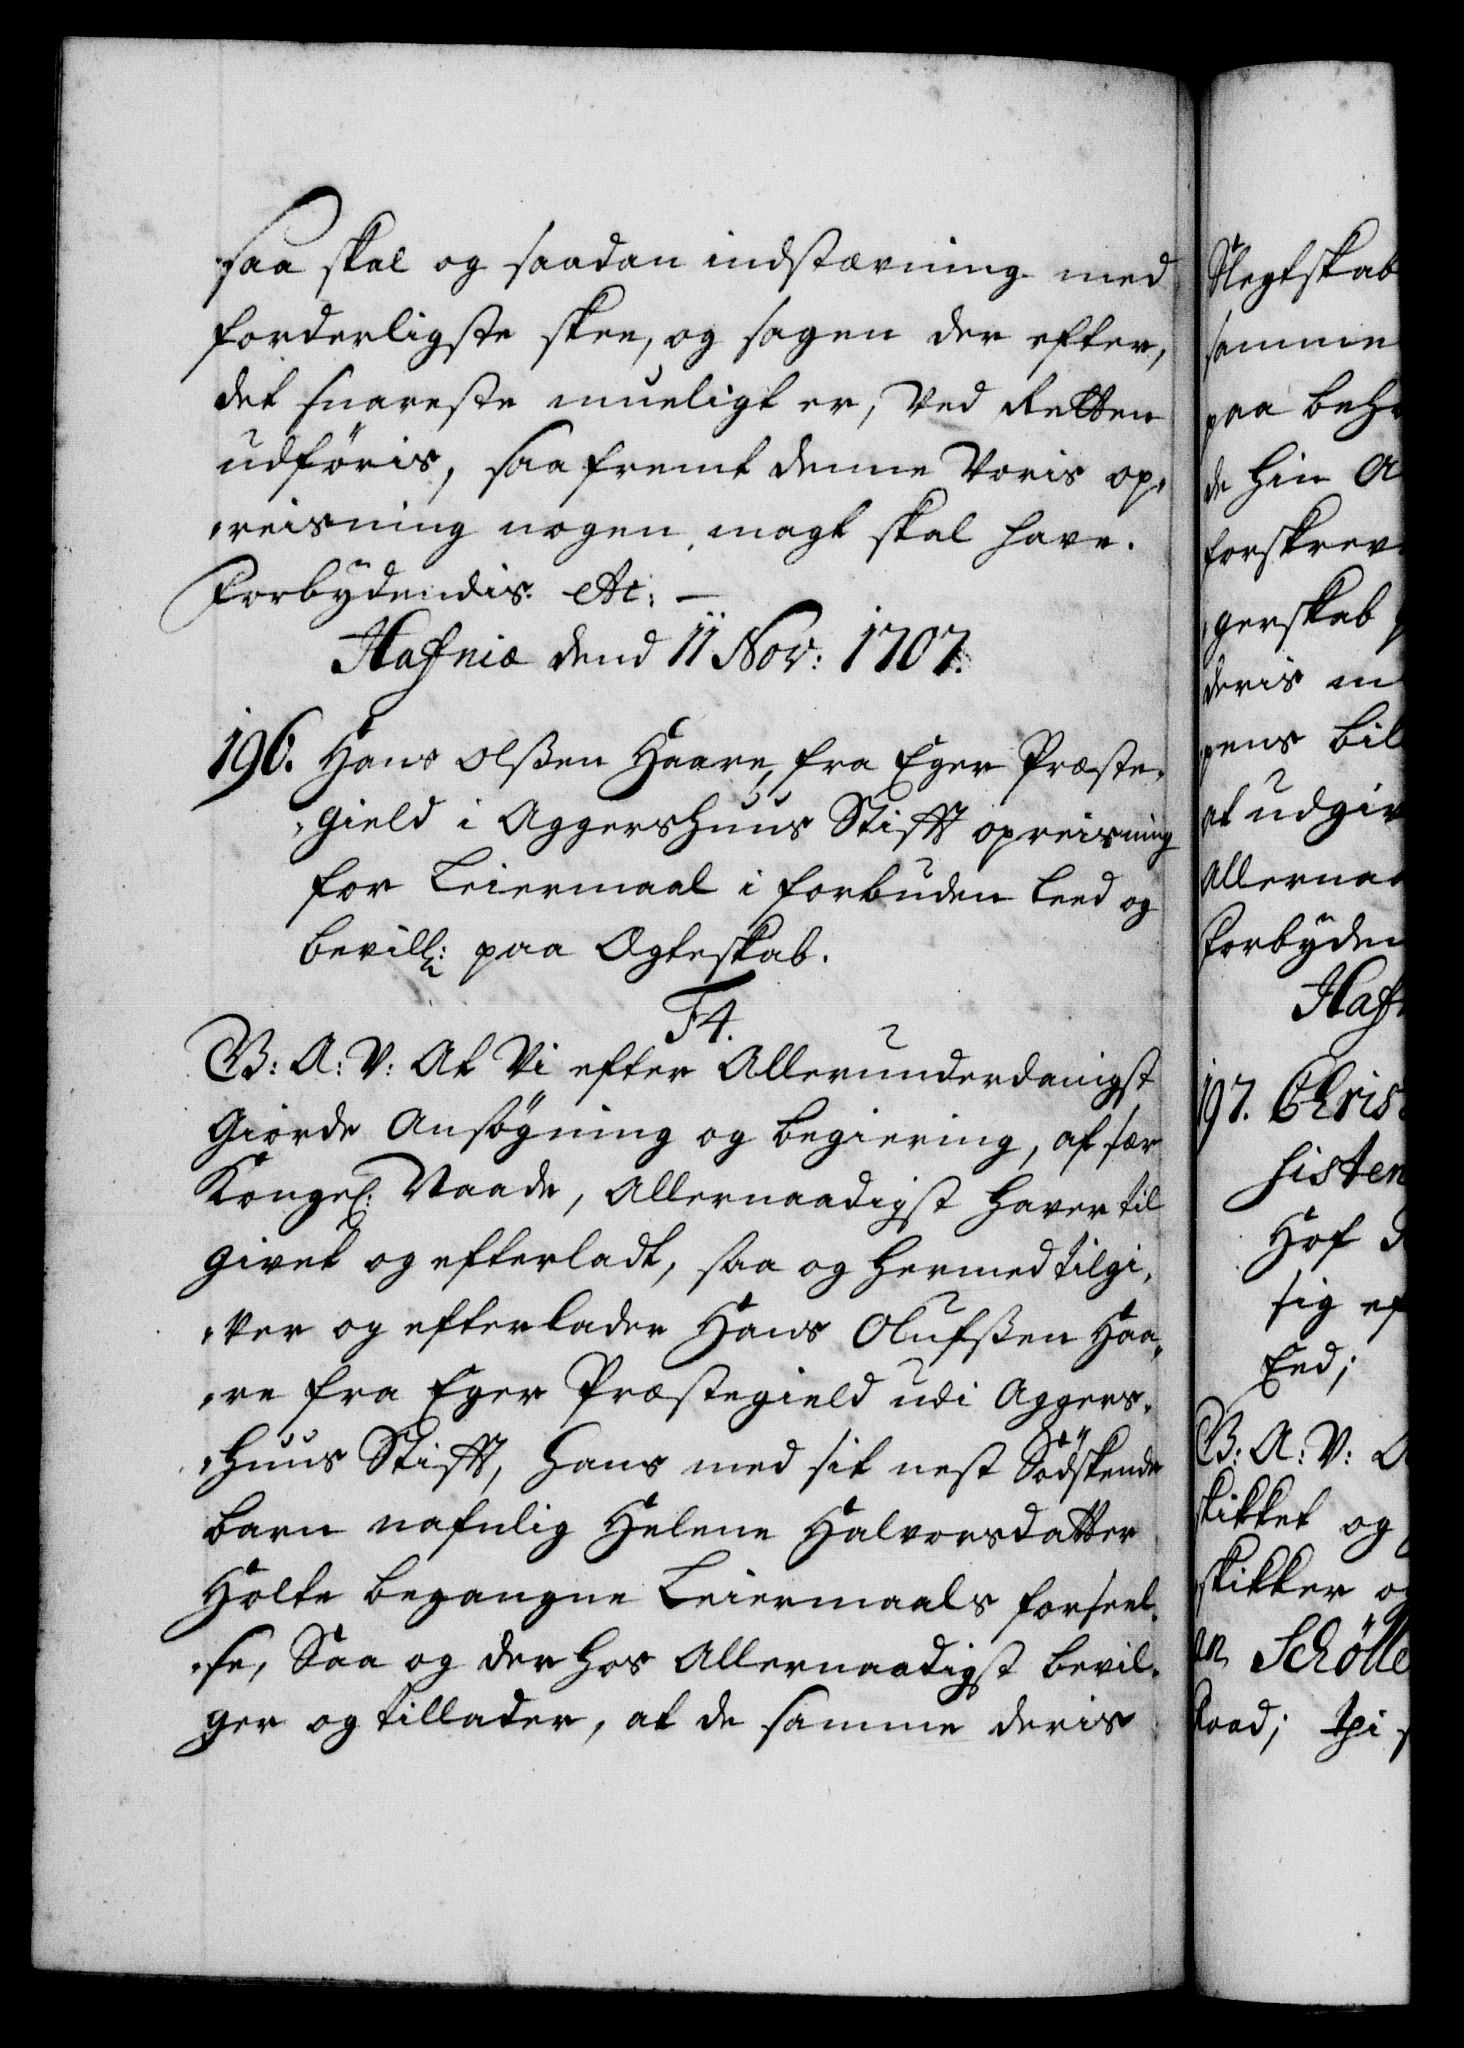 saa skal og saadan indstævning med
forderligste skee, og sagen der efter,
det snareste mueligt er, ved Retten
udföris, saa fremt denne Voris op,
,reisning nogen magt skal have.
Forbydendis. etc: —
Hafniæ dend 11 Nov: 1707.
196. Hans Olßen Haare, fra Eger Præste,
,gield i Aggershuus Stifft opreisning
for Leiermaal i forbuden leed og
bevill: paa Ægteskab.
F4.
B: A: V: At Vi efter Allerunderdanigst
Giorde Ansögning og begiering, af sær
Kongel: Naade, Allernaadigst haver til
givet og efterladt, saa og hermed tilgi,
,ver og efterlader Hans Olufßen Haa,
,re fra Eger Præstegield udi Aggers,
,huus Stifft, hans med sit nest Södskende
barn nafnlig Helene Halvorsdatter
Holte begangne Leiermaals forseel,
,se, Saa og der hos Allernaadigst bevil,
ger og tillader, at de samme deris
Slegtskab
samme
paa
de hin
forskrev
,gerskab
deris
pens
at udgiv
Allernaa
Forbyden
Haf
197. Christ
sisten
Hof
sig ef
Eed;
B: A: V:
skikket og
skikker
Schölle
Raad;